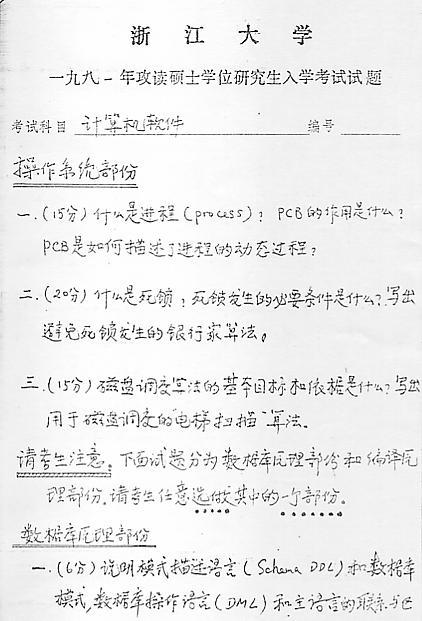 浙江大学
一九八一年攻读硕士学位研究生入学考试试题
考试科目 计算机软件 编号
操作系统部份
一.(15分)什么是进程(process)? PCB的作用是什么?
PCB是如何描述了进程的动态过程?
二.(20分)什么是死锁?死锁发生的必要条件是什么?写出
避免死锁发生的银行家算法。
三.(15分)磁盘调度算法的基本目标和依据是什么?写出
用于磁盘调度的“电梯扫描”算法.
请考生注意。下面试题分为数据库原理部份和编译原
理部份.请考生任意选做其中的一个部份。
数据库原理部份
一.(6分)说明模式描述语言(Schema DDL)和数据库
模式,数据库操作语言(DML)和主语言的联系与区